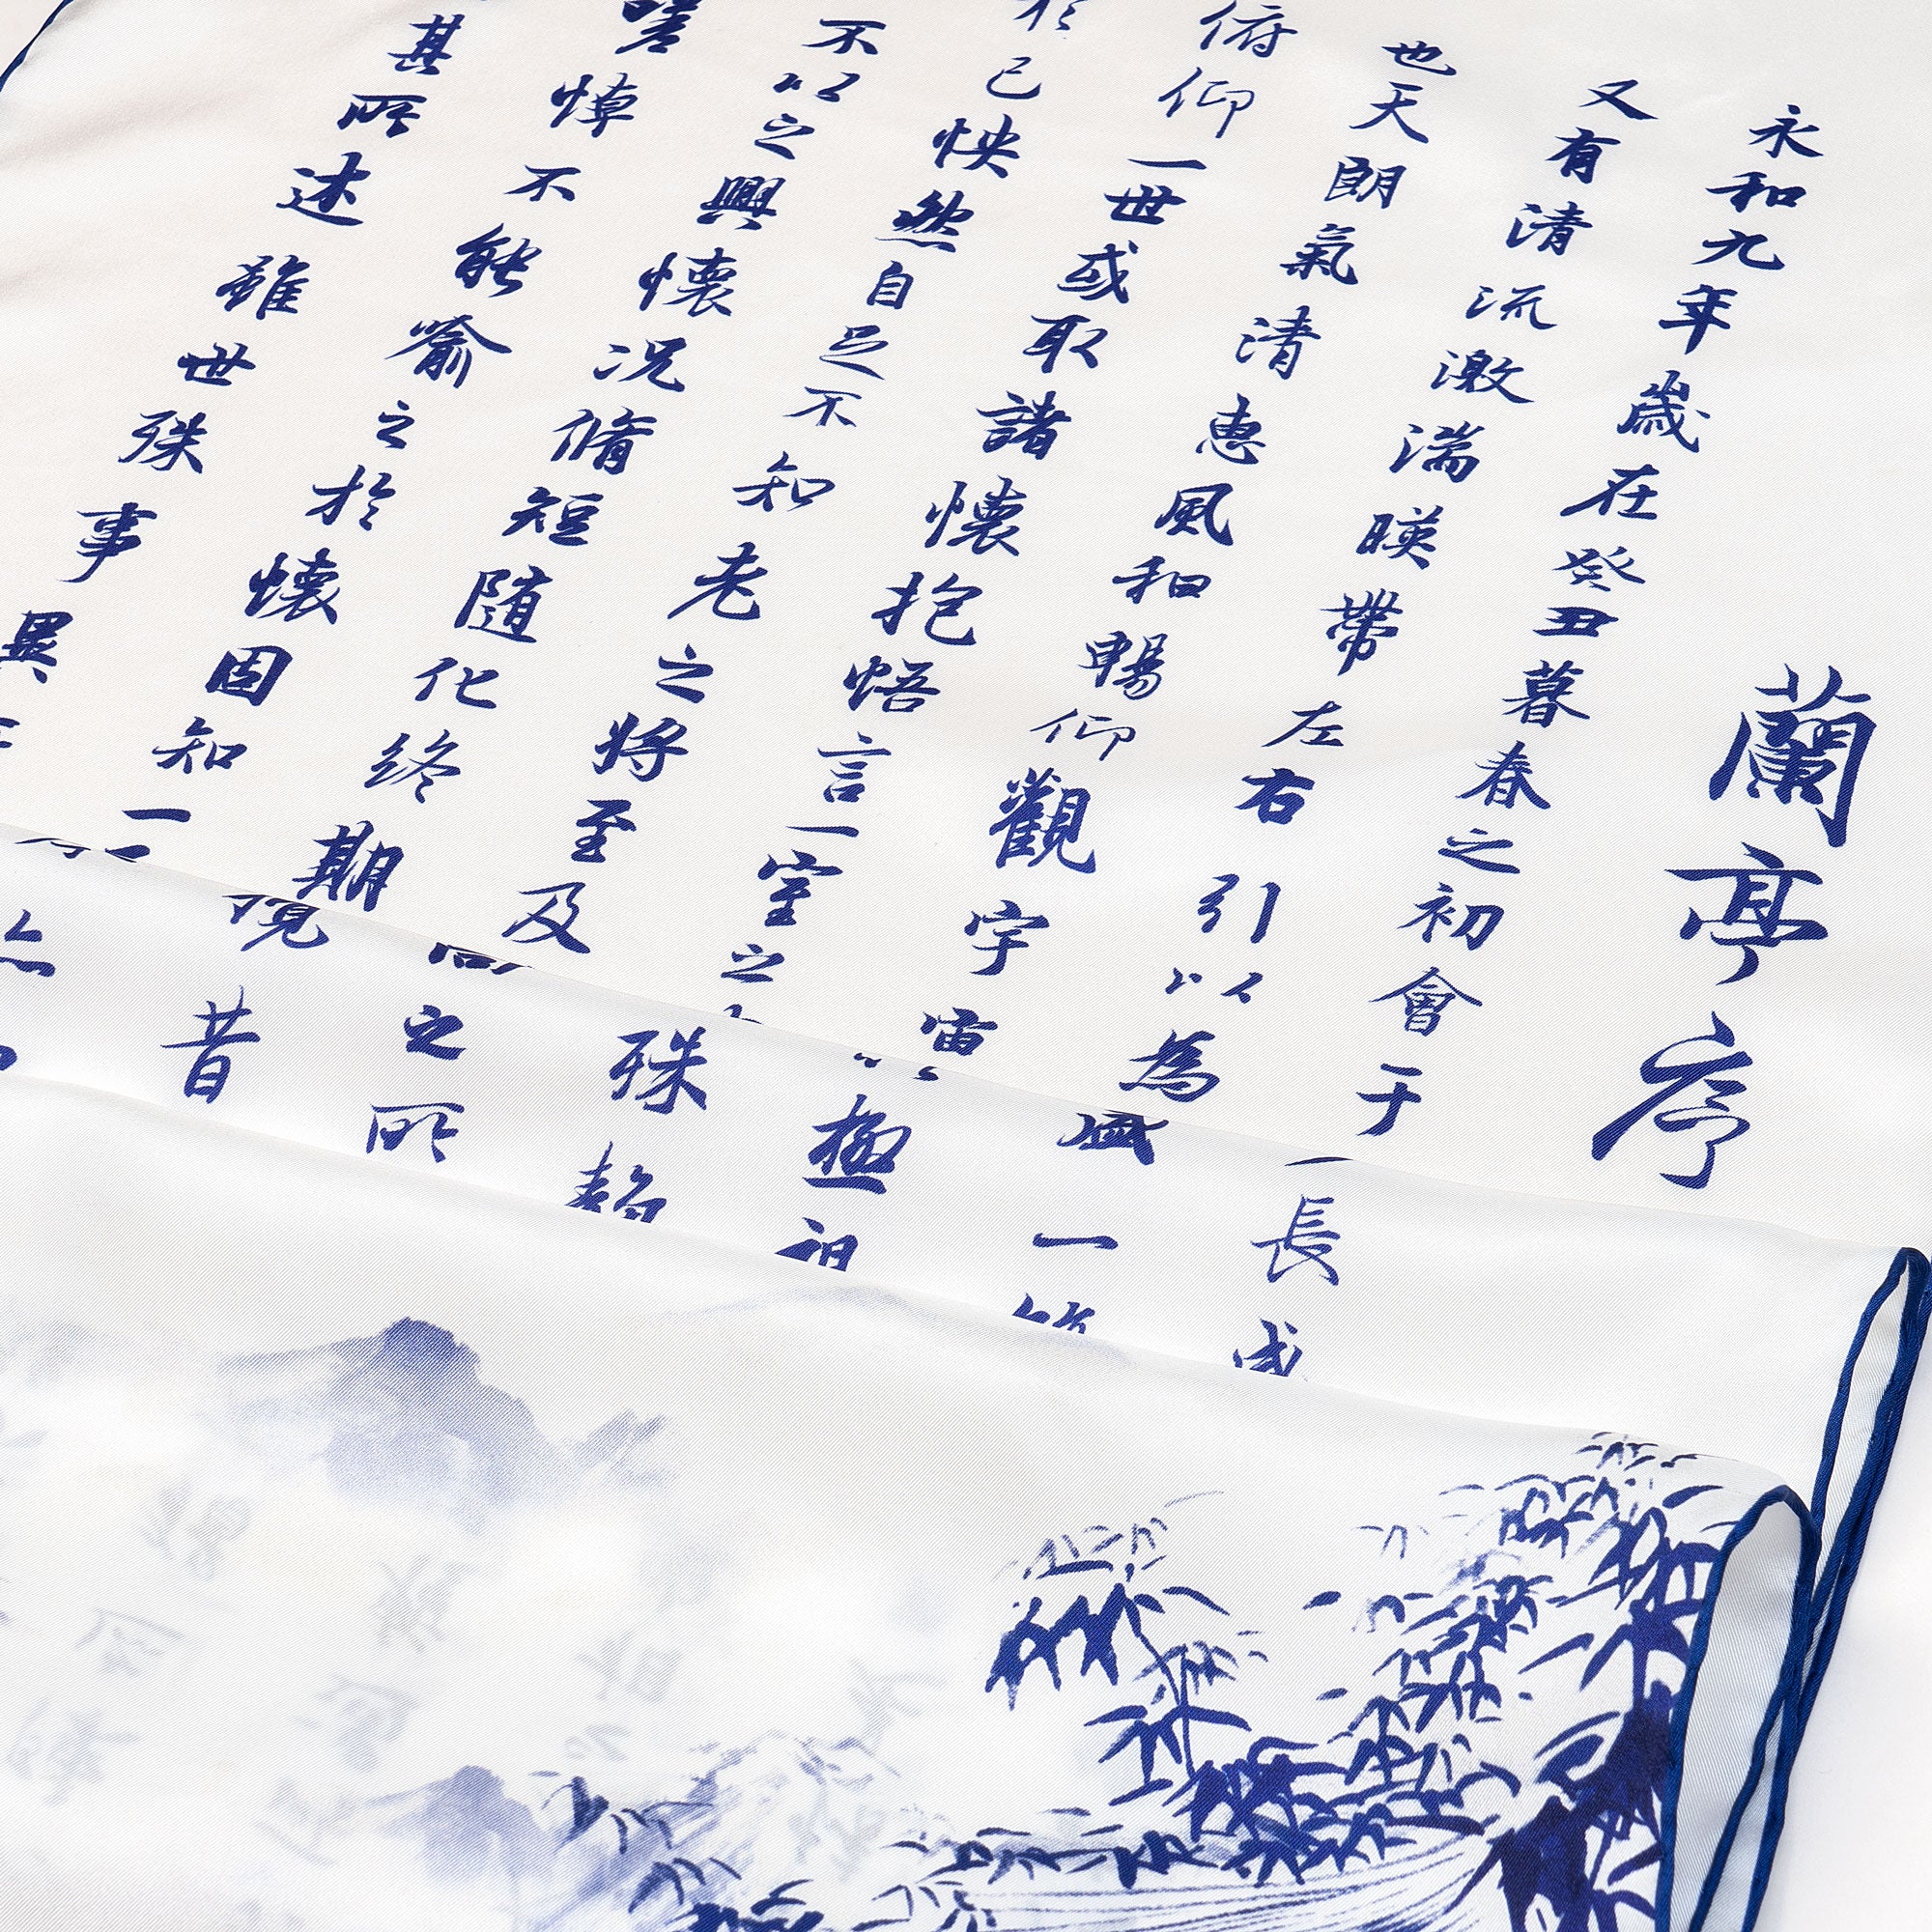 蘭亭序
永和九年歲在癸丑暮春之初會于長咸
又有清流激湍暎帶左右引以為盛一
也天朗氣清惠風和暢仰觀宇宙極
俯仰一世或取諸懷抱悟言一室之殊
於己怏然自足不知老之將至及之所
不以之興懷況脩短隨化終期昔
嗟悼不能喻之於懷固知一
其所述雖世殊事異